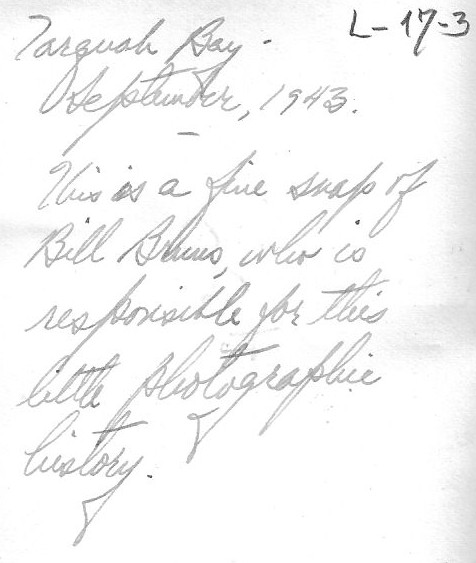 L-17-3
Tarquah Bay -
September, 1943.
This is a fine snap of
Bill Bruns, who is
responsible for this
little photographic
history.